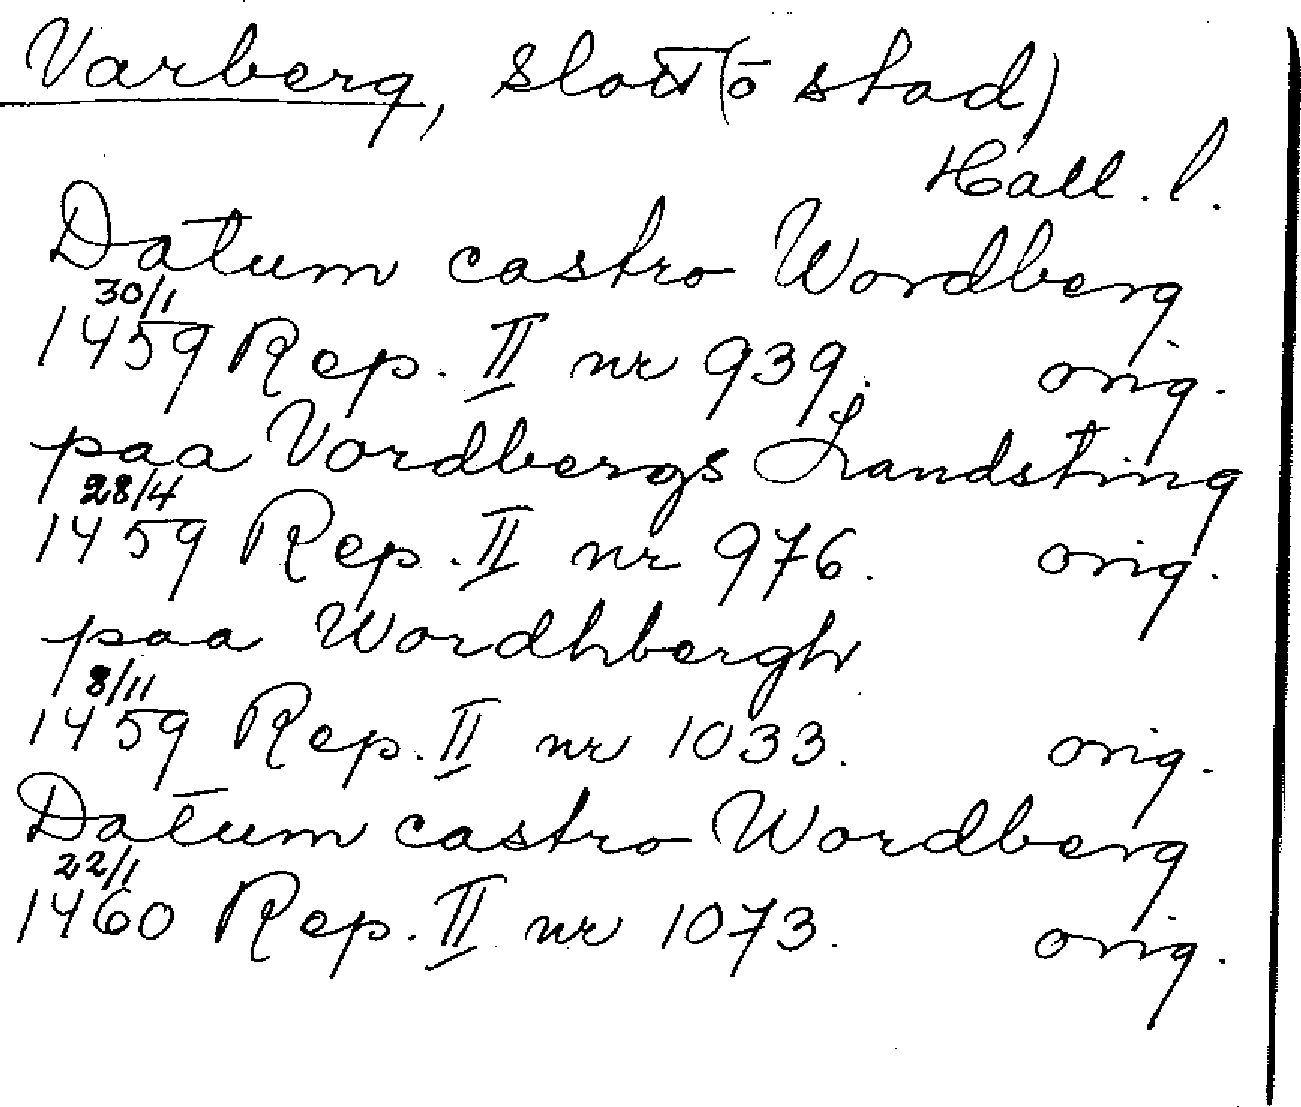 Varberg, slott (ō stad)
Hall. l.
Datum castro Wordberg
30/1
1459 Rep. II nr 939. orig.
paa Vordbergs Landsting
28/4
1459 Rep. II nr 976. orig.
paa Wordhbergh
8/11
1459 Rep. II nr 1033. orig.
Datum castro Wordberg
22/1
1460 Rep. II nr 1073. orig.